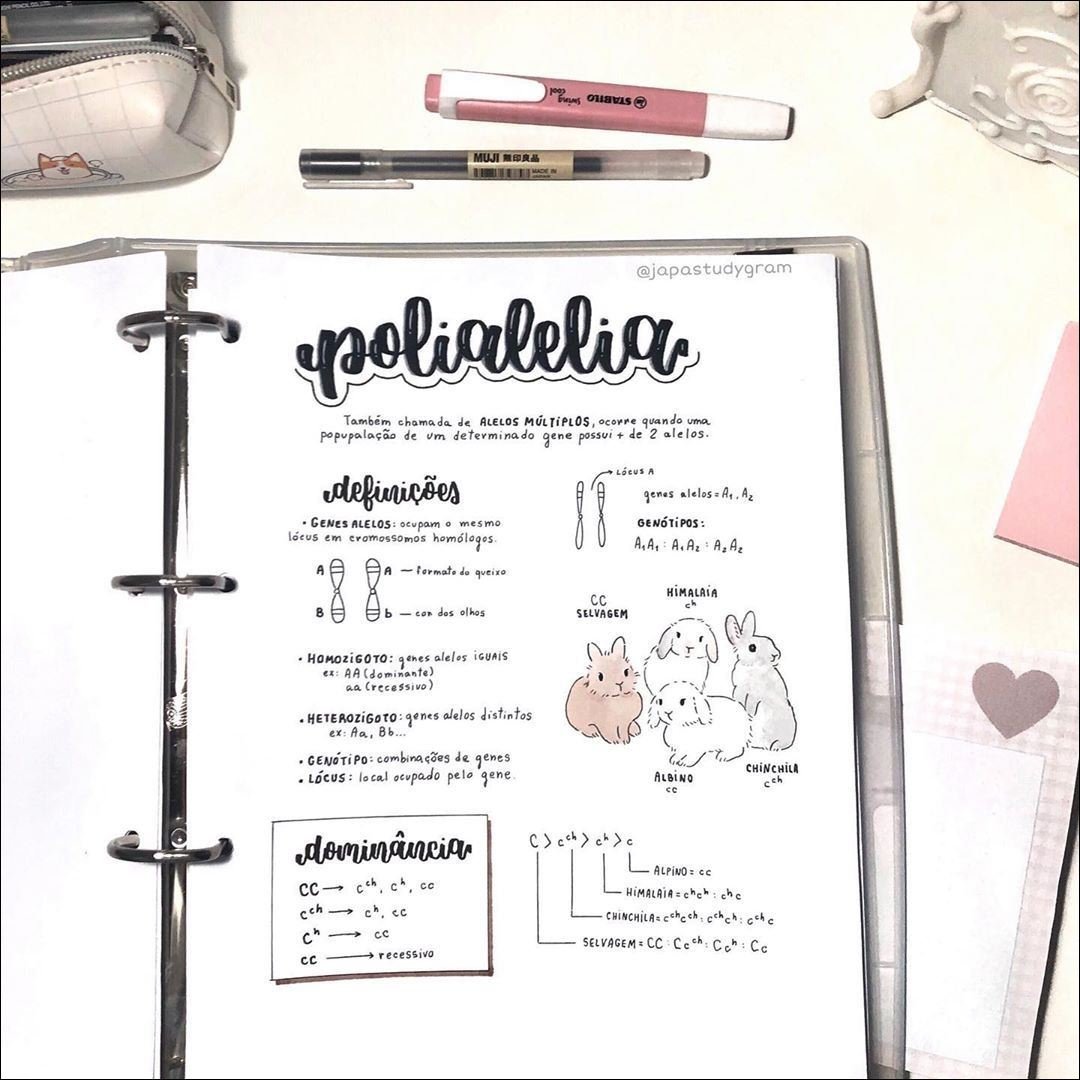 STABILO
swing cool
MUJI 無印良品
MADE IN
@japastudygram
polialelia
Também chamada de ALELOS MÚLTIPLOS, ocorre quando uma
popupalação de um determinado gene possui + de 2 alelos.
definições
• GENES ALELOS: ocupam o mesmo
lócus em cromossomos homólogos.
A A — formato do queixo
B b — cor dos olhos
• HOMOZIGOTO: genes alelos IGUAIS
ex: AA (dominante)
aa (recessivo)
• HETEROZIGOTO: genes alelos distintos
ex: Aa, Bb...
• GENÓTIPO: combinações de genes
• LÓCUS: local ocupado pelo gene.
LÓCUS A
genes alelos = A₁, A₂
GENÓTIPOS:
A₁A₁ : A₁A₂ : A₂A₂
CC
SELVAGEM
HIMALAIA
ch
ALBINO
cc
CHINCHILA
cᶜʰ
dominância
CC → cᶜʰ, cʰ, cc
cᶜʰ → cʰ, cc
cʰ → cc
cc → recessivo
C > cᶜʰ > cʰ > c
ALPINO = cc
HIMALAIA = cʰcʰ : cʰc
CHINCHILA = cᶜʰcᶜʰ : cᶜʰcʰ : cᶜʰc
SELVAGEM = CC : Ccᶜʰ : Ccʰ : Cc